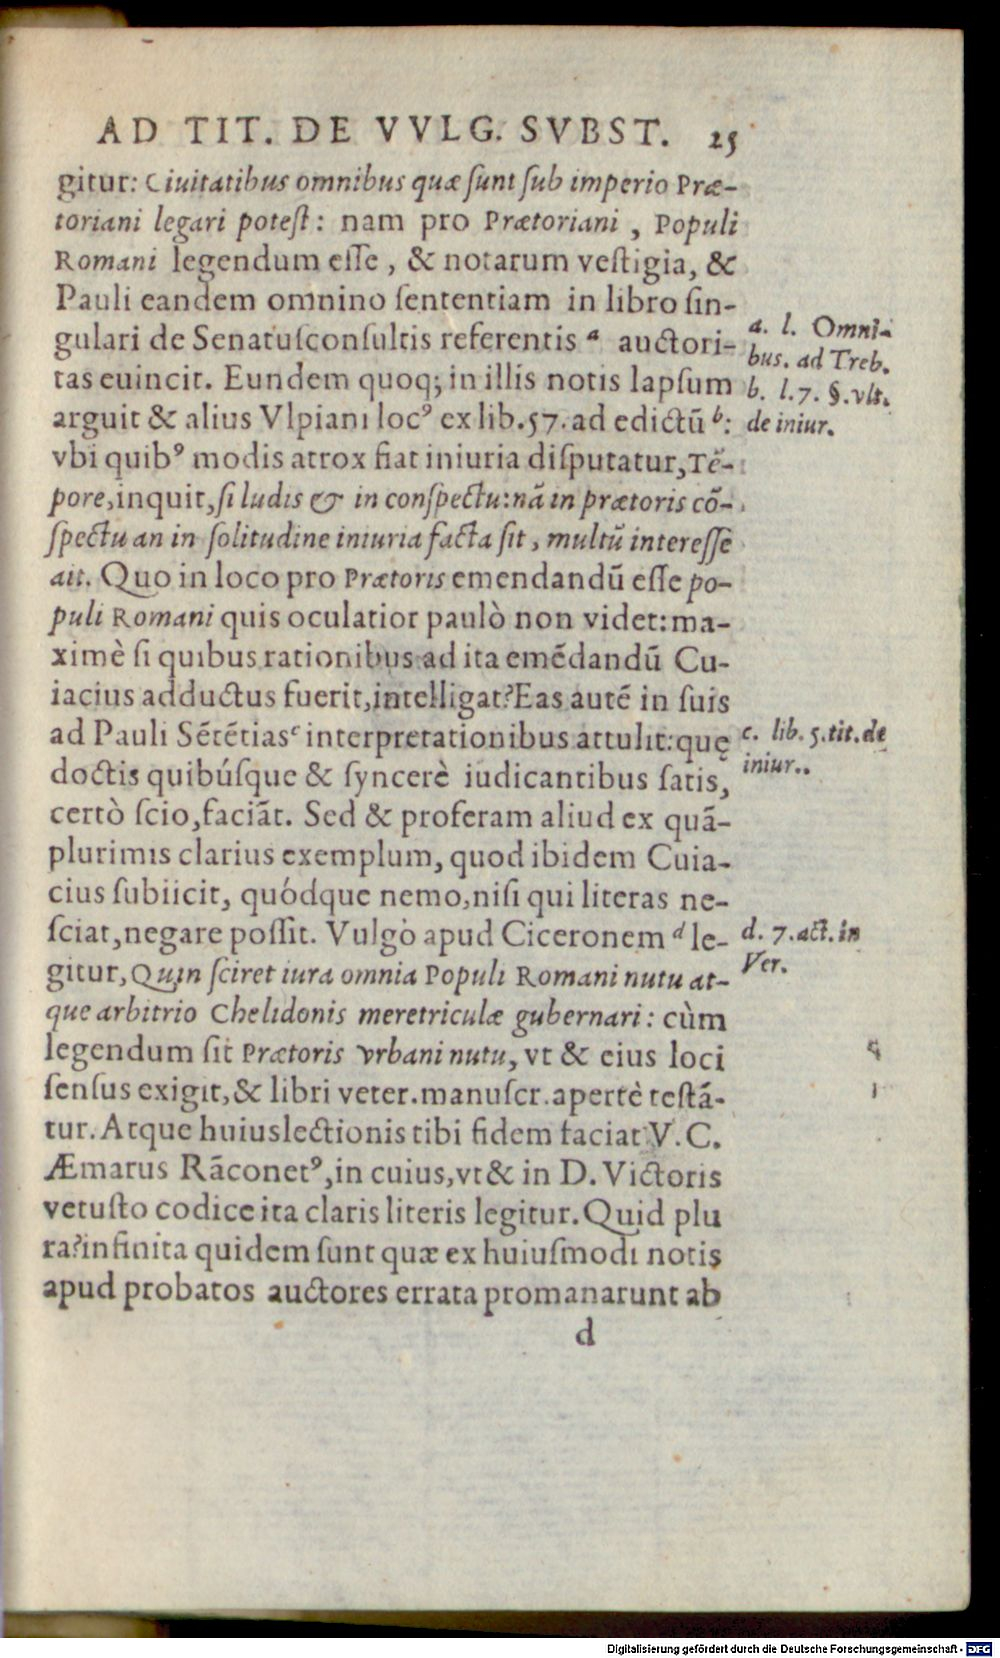 AD TIT. DE VVLG. SVBST. 25
gitur: Ciuitatibus omnibus quæ ſunt ſub imperio Præ-
toriani legari poteſt: nam pro Prætoriani, Populi
Romani legendum eſſe, & notarum veſtigia, &
Pauli eandem omnino ſententiam in libro ſin-
gulari de Senatuſconſultis referentis ᵃ auctori-
tas euincit. Eundem quoq; in illis notis lapſum
arguit & alius Vlpiani locꝰ ex lib.57. ad edictũ ᵇ:
vbi quibꝰ modis atrox fiat iniuria diſputatur, Tẽ-
pore, inquit, ſi ludis & in conſpectu: nã in prætoris cõ-
ſpectu an in ſolitudine iniuria facta ſit, multũ intereſſe
ait. Quo in loco pro Prætoris emendandũ eſſe po-
puli Romani quis oculatior paulò non videt: ma-
ximè ſi quibus rationibus ad ita emẽdandũ Cu-
iacius adductus fuerit, intelligat? Eas autẽ in ſuis
ad Pauli Sẽtẽtias ᶜ interpretationibus attulit: quę
doctis quibúſque & ſyncerè iudicantibus ſatis,
certò ſcio, faciãt. Sed & proferam aliud ex quã-
plurimis clarius exemplum, quod ibidem Cuia-
cius ſubiicit, quódque nemo, niſi qui literas ne-
ſciat, negare poſſit. Vulgò apud Ciceronem ᵈ le-
gitur, Quin ſciret iura omnia Populi Romani nutu at-
que arbitrio Chelidonis meretriculæ gubernari: cùm
legendum ſit Prætoris vrbani nutu, vt & eius loci
ſenſus exigit, & libri veter. manuſcr. apertè teſtã-
tur. Atque huius lectionis tibi fidem faciat V.C.
Æmarus Rãconetꝰ, in cuius, vt & in D. Victoris
vetuſto codice ita claris literis legitur. Quid plu
ra? infinita quidem ſunt quæ ex huiuſmodi notis
apud probatos auctores errata promanarunt ab
d
a. l. Omni-
bus. ad Treb.
b. l.7. §.vlt.
de iniur.
c. lib. 5.tit.de
iniur..
d. 7.act.in
Ver.
Digitalisierung gefördert durch die Deutsche Forschungsgemeinschaft - DFG